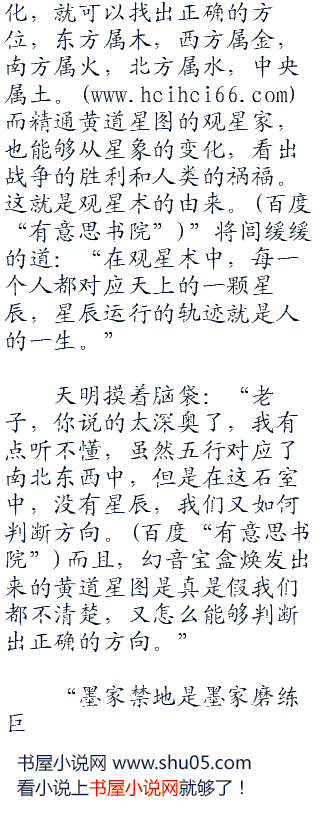 化，就可以找出正确的方
位，东方属木，西方属金，
南方属火，北方属水，中央
属土。(www.hcihci66.com)
而精通黄道星图的观星家，
也能够从星象的变化，看出
战争的胜利和人类的祸福。
这就是观星术的由来。(百度
“有意思书院”)”将闾缓缓
的道：“在观星术中，每一
个人都对应天上的一颗星
辰，星辰运行的轨迹就是人
的一生。”
天明摸着脑袋：“老
子，你说的太深奥了，我有
点听不懂，虽然五行对应了
南北东西中，但是在这石室
中，没有星辰，我们又如何
判断方向。(百度“有意思书
院”)而且，幻音宝盒焕发出
来的黄道星图是真是假我们
都不清楚，又怎么能够判断
出正确的方向。”
“墨家禁地是墨家磨练
巨
书屋小说网 www.shu05.com
看小说上书屋小说网就够了！